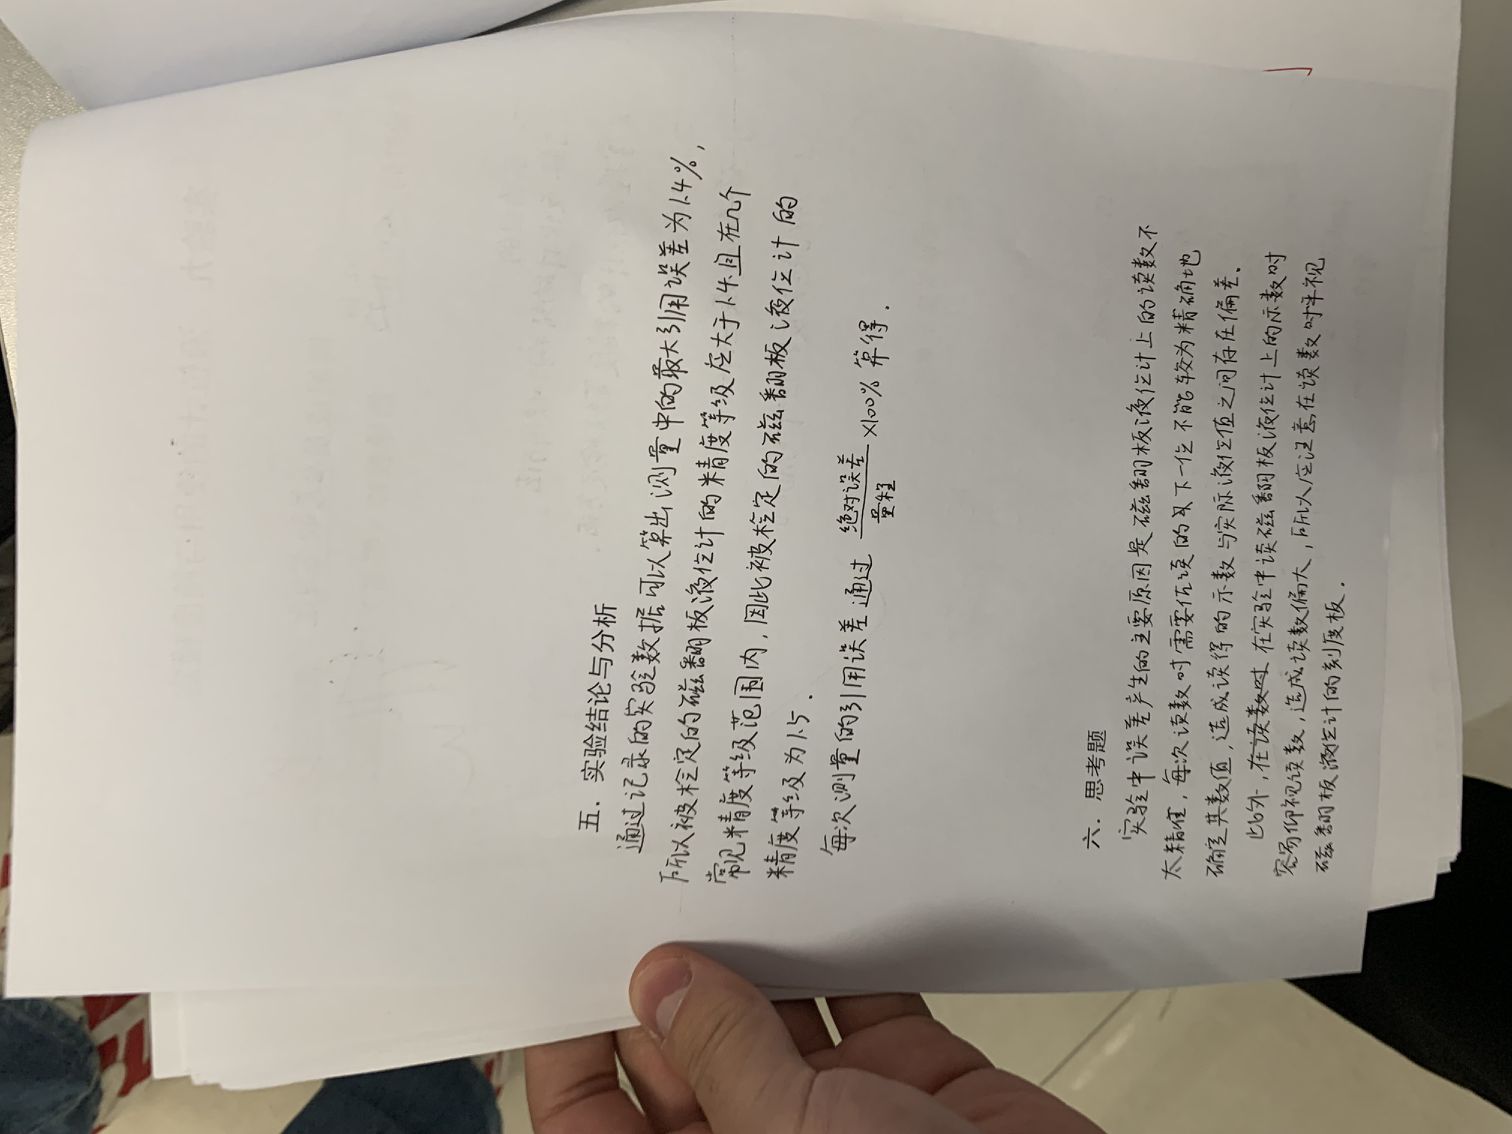 五. 实验结论与分析
通过记录的实验数据可以算出, 测量中的最大引用误差为1.4%,
所以被检定的磁翻板液位计的精度等级应大于1.4且在几个
常见精度等级范围内, 因此被检定的磁翻板液位计的
精度等级为1.5.
每次测量的引用误差通过 绝对误差/量程 ×100% 算得.
六. 思考题
实验中误差产生的主要原因是磁翻板液位计上的读数不
太精准, 每次读数时需要估读的下一位不能较为精确地
确定其数值, 造成读得的示数与实际液位值之间存在偏差.
此外, 在读数时 在实验中读磁翻板液位计上的示数时
容易仰视读数, 造成读数偏大, 所以应注意在读数时平视
磁翻板液位计的刻度板.